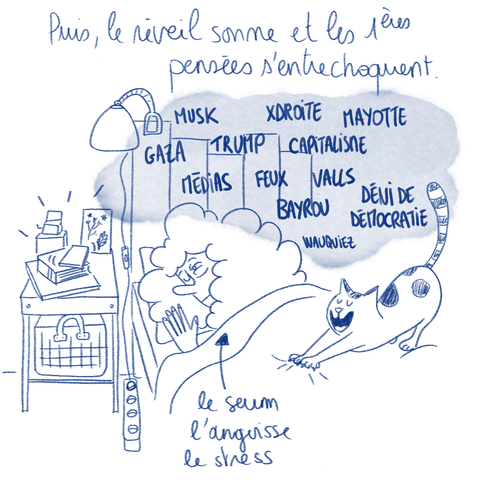 Puis, le réveil sonne et les 1ères
pensées s'entrechoquent.
MUSK XDROITE MAYOTTE
GAZA TRUMP CAPITALISME
MÉDIAS FEUX VALLS
BAYROU DÉNI DE
DÉMOCRATIE
WAUQUIEZ
le seum
l'angoisse
le stress